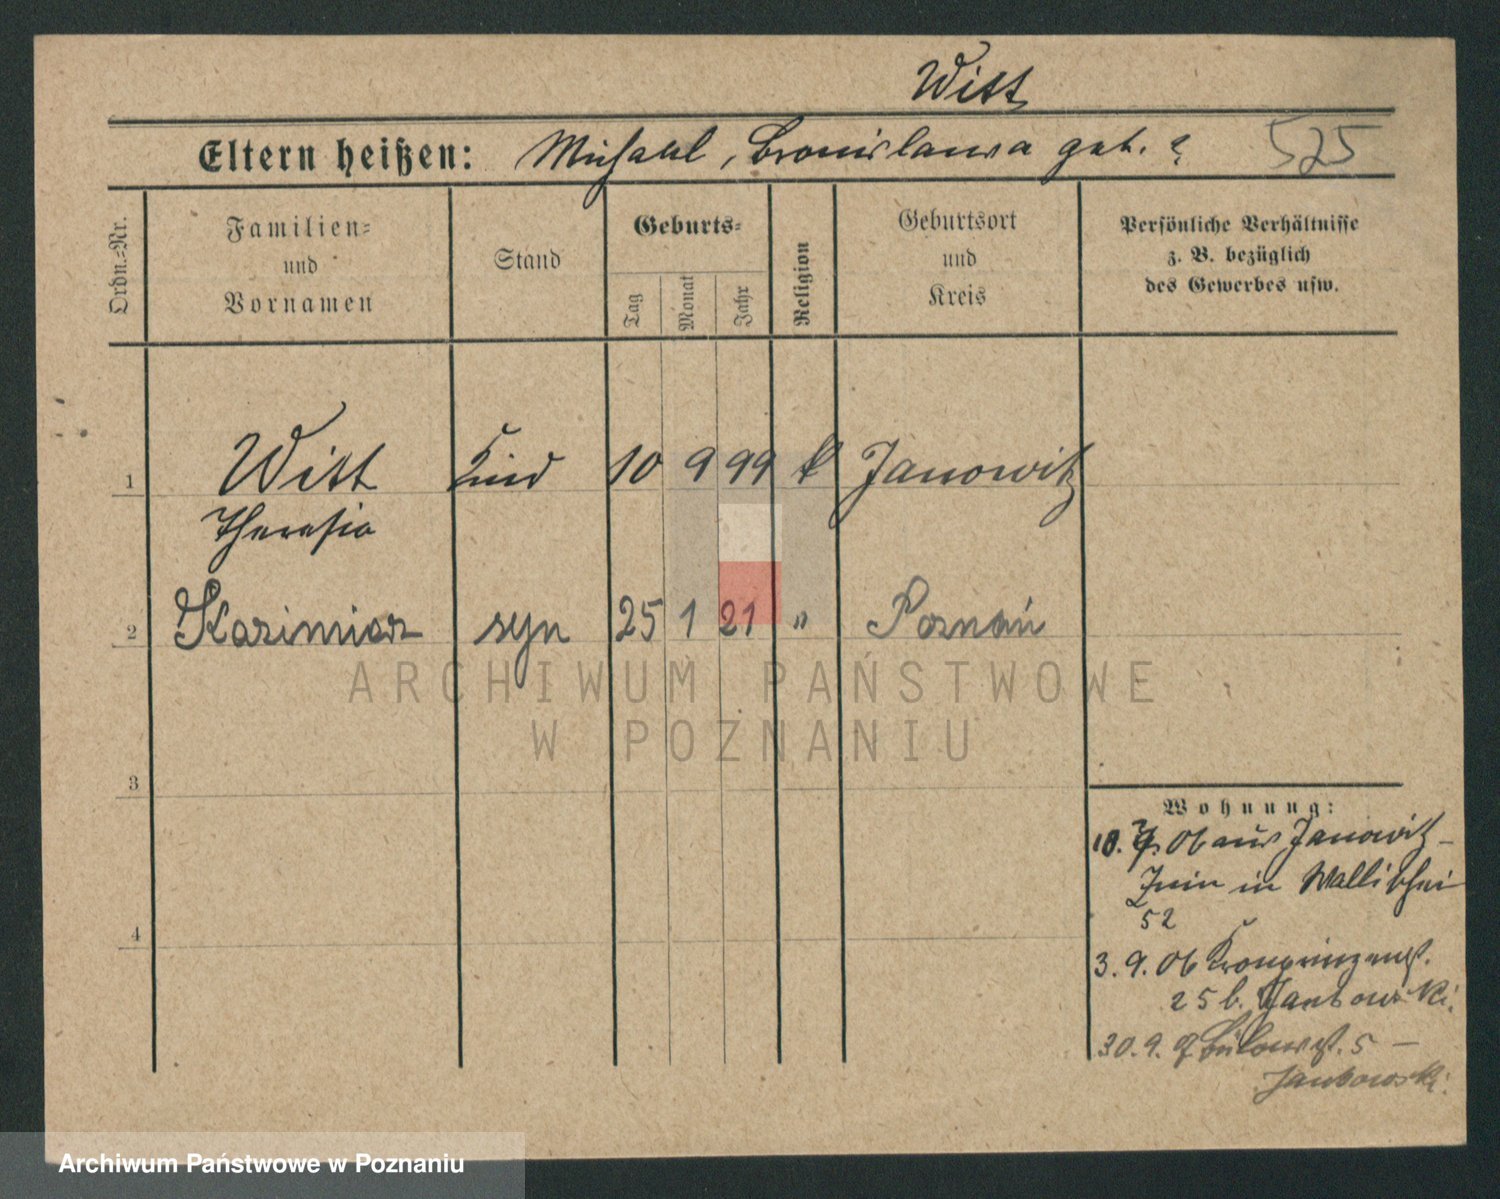 Witt
Eltern heißen: Michael, Bronislawa geb. ? 525
Ordn.=Nr.
Familien=
und
Vornamen
Stand
Geburts=
Tag
Monat
Jahr
Religion
Geburtsort
und
Kreis
Persönliche Verhältnisse
z. B. bezüglich
des Gewerbes usw.
1 Witt Kind 10 9 99 k Janowitz
Theresia
2 Kazimierz syn 25 1 21 " Poznań
ARCHIWUM PAŃSTWOWE
W POZNANIU
3
4
Wohnung:
10. 06 aus Janowitz-
Znin in Wallischei
52
3. 9. 06 Kronprinzenst.
25 b. Jankowski.
30. 9. Bülowst. 5 -
Jankowski.
Archiwum Państwowe w Poznaniu